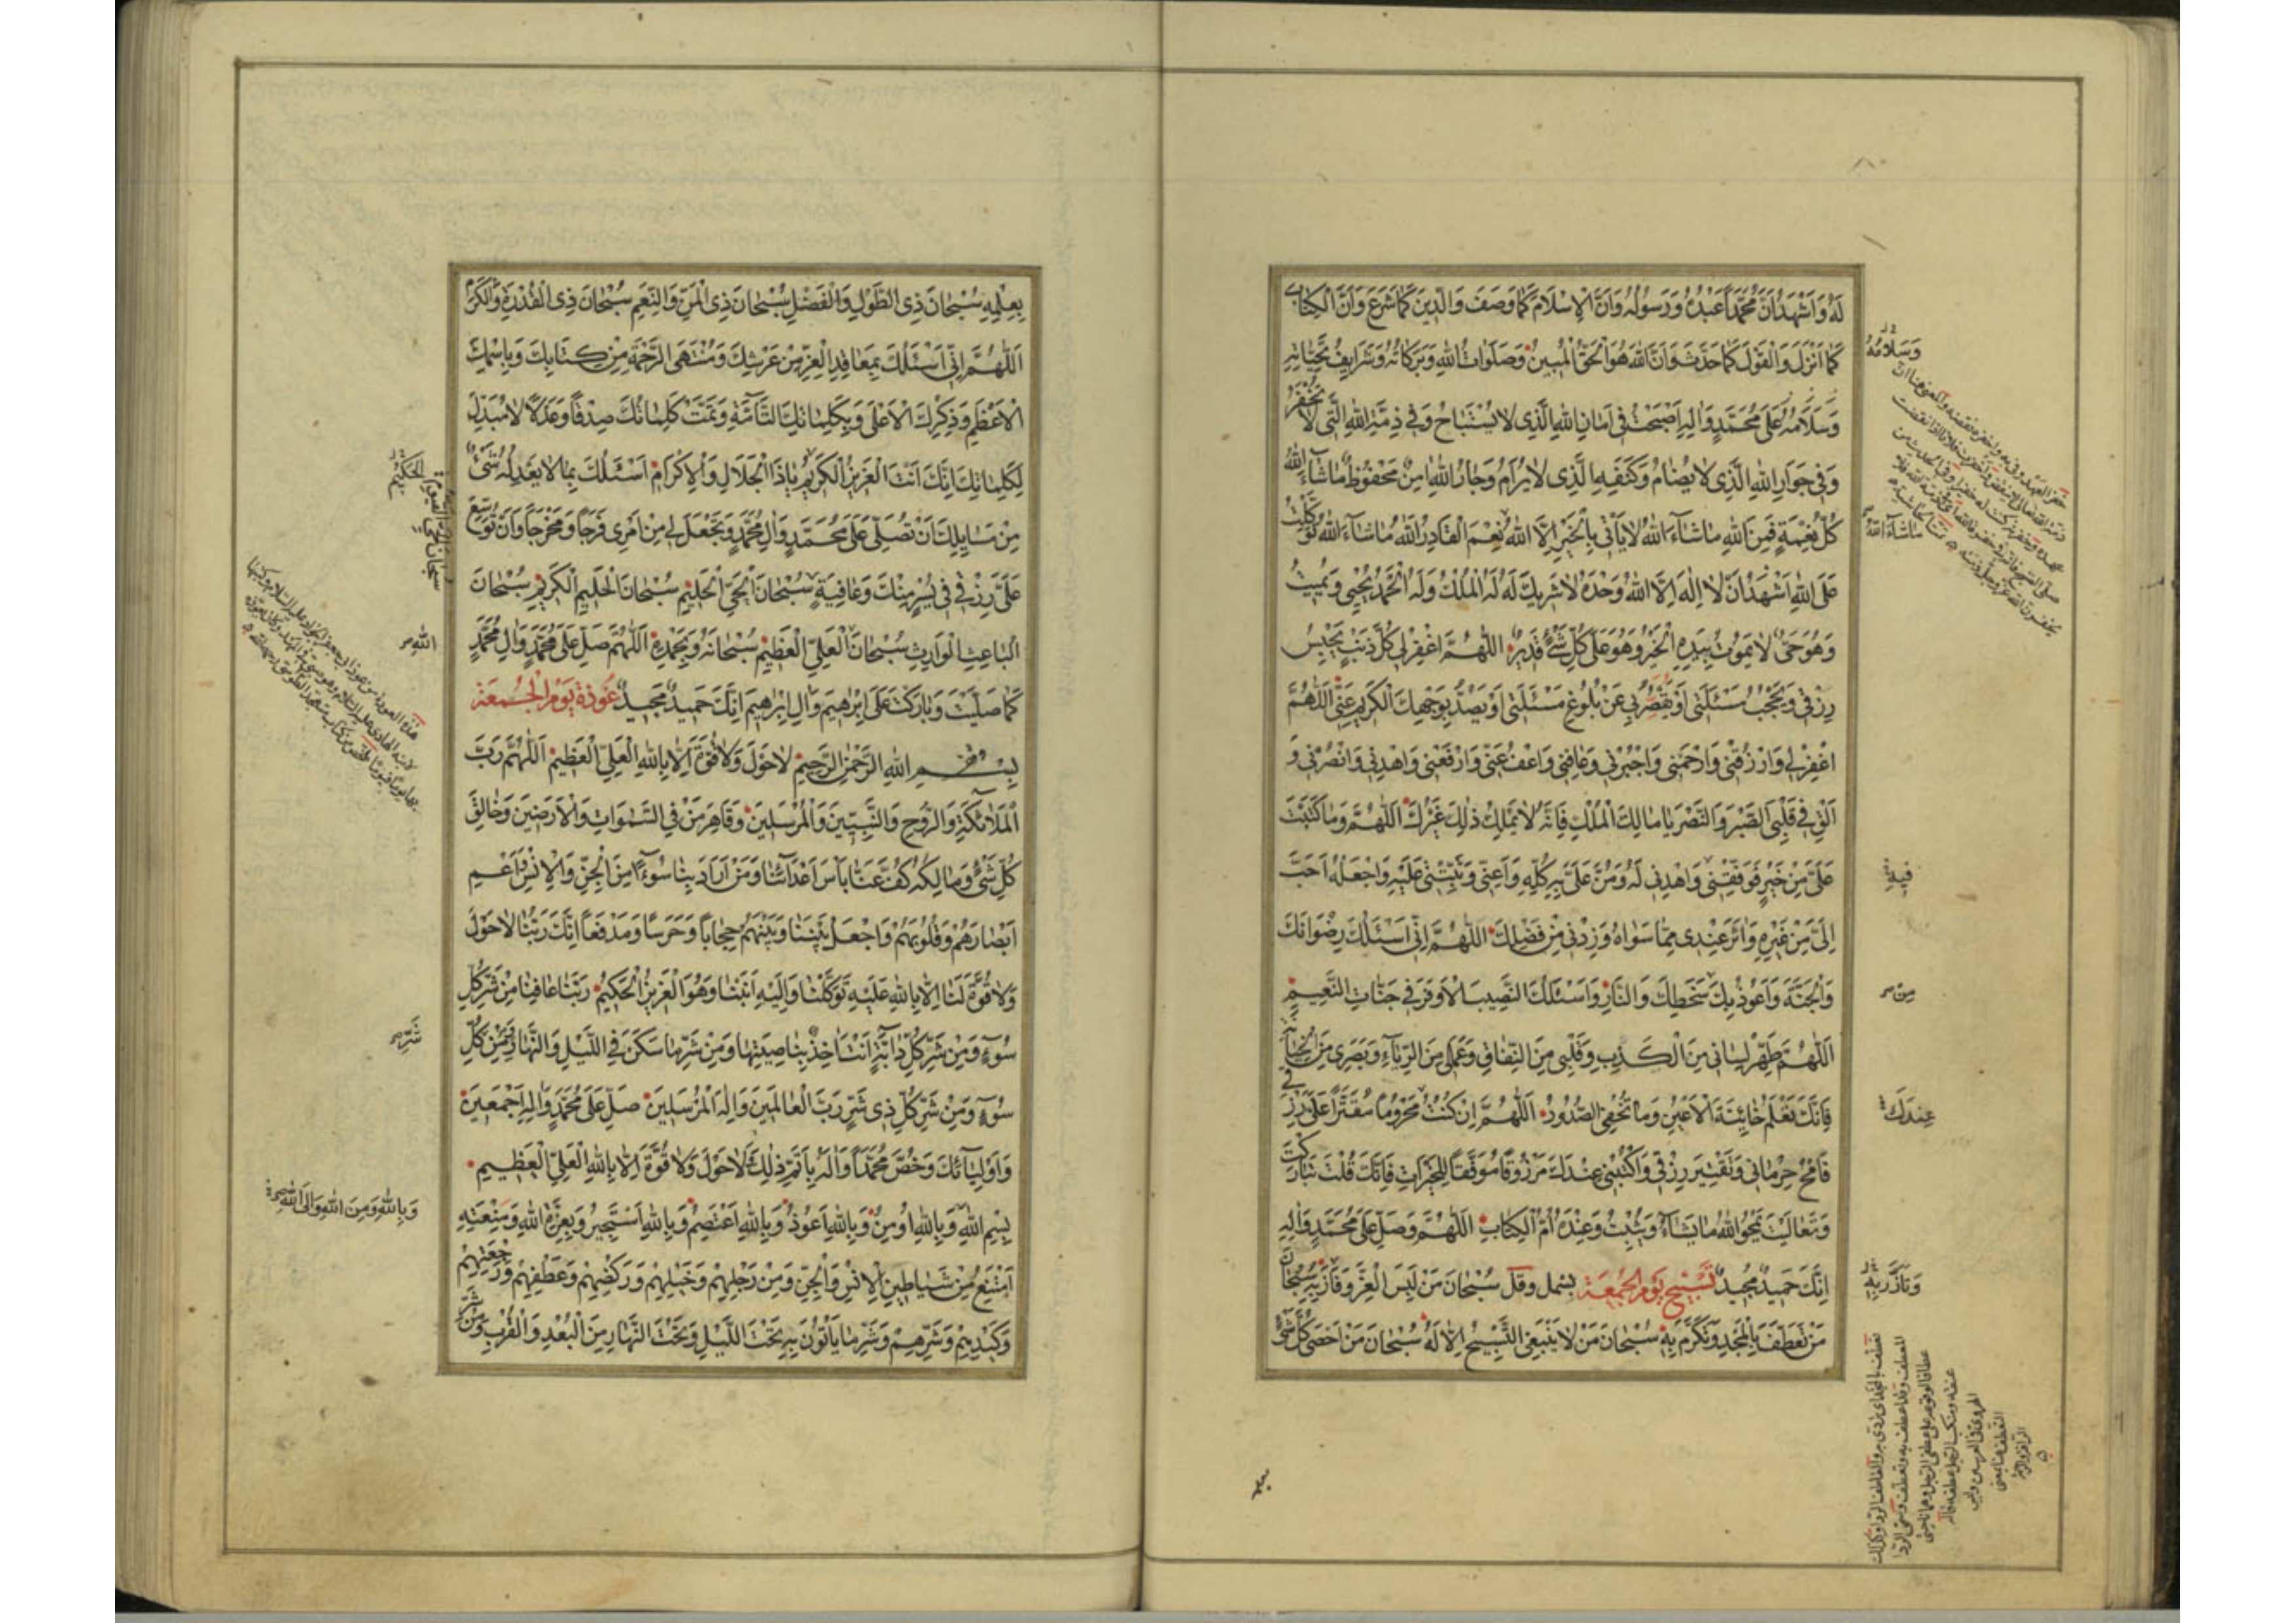 لَهُ وَاَشْهَدُ اَنَّ مُحَمَّداً عَبْدُهُ وَرَسُولُهُ وَاَنَّ الْاِسْلَامَ كَمَا وَصَفَ وَالدِّينَ كَمَا شَرَعَ وَاَنَّ الْكِتَابَ
كَمَا اَنْزَلَ وَالْقَوْلَ كَمَا حَدَّثَ وَاَنَّ اللهَ هُوَ الْحَقُّ الْمُبِينُ وَصَلَوَاتُ اللهِ وَبَرَكَاتُهُ وَشَرَايِفُ تَحِيَّاتِهِ
وَسَلَامُهُ عَلَى مُحَمَّدٍ وَالِهِ اَصْبَحْتُ فِى اَمَانِ اللهِ الَّذِى لَا يُسْتَبَاحُ وَفِى ذِمَّةِ اللهِ الَّتِى لَا تُخْفَرُ
وَفِى جَوَارِ اللهِ الَّذِى لَا يُضَامُ وَكَنَفِهِ الَّذِى لَا يُرَامُ وَجَارُ اللهِ امِنٌ مَحْفُوظٌ مَاشَآءَ اللهُ
كُلُّ نِعْمَةٍ فَمِنَ اللهِ مَاشَآءَ اللهُ لَا يَاْتِى بِالْخَيْرِ اِلَّا اللهُ نِعْمَ الْقَادِرُ اللهُ مَاشَآءَ اللهُ تَوَكَّلْتُ
عَلَى اللهِ اَشْهَدُ اَنْ لَا اِلَهَ اِلَّا اللهُ وَحْدَهُ لَا شَرِيكَ لَهُ لَهُ الْمُلْكُ وَلَهُ الْحَمْدُ يُحْيِى وَيُمِيتُ
وَهُوَ حَىٌّ لَا يَمُوتُ بِيَدِهِ الْخَيْرُ وَهُوَ عَلَى كُلِّ شَىْءٍ قَدِيرٌ اللهُمَّ اغْفِرْ لِى كُلَّ ذَنْبٍ يَحْبِسُ
رِزْقِى وَيَحْجُبُ مَسْئَلَتِى اَوْ يَقْصُرُ بِى عَنْ بُلُوغِ مَسْئَلَتِى اَوْ يَصُدُّ بِوَجْهِكَ الْكَرِيمِ عَنِّى اللهُمَّ
اغْفِرْ لِى وَارْزُقْنِى وَارْحَمْنِى وَاجْبُرْنِى وَعَافِنِى وَاعْفُ عَنِّى وَارْفَعْنِى وَاهْدِنِى وَانْصُرْنِى وَ
اَلْقِ فِى قَلْبِى الصَّبْرَ وَالنَّصْرَ يَا مَالِكَ الْمُلْكِ فَاِنَّهُ لَا يَمْلِكُ ذَلِكَ غَيْرُكَ اللهُمَّ وَمَا كَتَبْتَ
عَلَىَّ مِنْ خَيْرٍ فَوَفِّقْنِى وَاهْدِنِى لَهُ وَمُنَّ عَلَىَّ بِهِ كُلِّهِ وَاَعِنِّى وَثَبِّتْنِى عَلَيْهِ وَاجْعَلْهُ اَحَبَّ
اِلَىَّ مِنْ غَيْرِهِ وَاثَرَ عِنْدِى مِمَّا سَوَاهُ وَزِدْنِى مِنْ فَضْلِكَ اللهُمَّ اِنِّى اَسْئَلُكَ رِضْوَانَكَ
وَالْجَنَّةَ وَاَعُوذُ بِكَ سَخَطِكَ وَالنَّارِ وَاَسْئَلُكَ النَّصِيبَ الْاَوْفَرَ فِى جَنَّاتِ النَّعِيمِ
اللهُمَّ طَهِّرْ لِسَانِى مِنَ الْكَذِبِ وَقَلْبِى مِنَ النِّفَاقِ وَعَمَلِى مِنَ الرِّيَآءِ وَبَصَرِى مِنَ الْخِيَانَةِ
فَاِنَّكَ تَعْلَمُ خَائِنَةَ الْاَعْيُنِ وَمَا تُخْفِى الصُّدُورُ اللهُمَّ اِنْ كُنْتُ مَحْرُوماً مُقَتَّراً عَلَىَّ رِزْقِى
فَامْحُ حِرْمَانِى وَتَقْتِيرَ رِزْقِى وَاكْتُبْنِى عِنْدَكَ مَرْزُوقاً مُوَفَّقاً لِلْخَيْرَاتِ فَاِنَّكَ قُلْتَ تَبَارَكْتَ
وَتَعَالَيْتَ يَمْحُو اللهُ مَا يَشَآءُ وَيُثْبِتُ وَعِنْدَهُ اُمُّ الْكِتَابِ اللهُمَّ وَصَلِّ عَلَى مُحَمَّدٍ وَالِهِ
اِنَّكَ حَمِيدٌ مَجِيدٌ تَسْبِيحُ يَوْمِ الْجُمُعَةِ بسمل وَقُل سُبْحَانَ مَنْ لَبِسَ الْعِزَّ وَفَازَ بِهِ سُبْحَانَ
مَنْ تَعَطَّفَ بِالْمَجْدِ وَتَكَرَّمَ بِهِ سُبْحَانَ مَنْ لَا يَنْبَغِى التَّسْبِيحُ اِلَّا لَهُ سُبْحَانَ مَنْ اَحْصَى كُلَّ شَىْءٍ
وَسَلَامُهُ
مَاشَآءَ اللهُ
فِيهِ
مِنْ
عِنْدَكَ
بِعِلْمِهِ سُبْحَانَ ذِى الطَّوْلِ وَالْفَضْلِ سُبْحَانَ ذِى الْمَنِّ وَالنِّعَمِ سُبْحَانَ ذِى الْقُدْرَةِ وَالْكَرَمِ
اَللّٰهُمَّ اِنِّى اَسْئَلُكَ بِمَعَاقِدِ الْعِزِّ مِنْ عَرْشِكَ وَمُنْتَهَى الرَّحْمَةِ مِنْ كِتَابِكَ وَبِاسْمِكَ
الْاَعْظَمِ وَذِكْرِكَ الْاَعْلَى وَبِكَلِمَاتِكَ التَّآمَّةِ وَتَمَّتْ كَلِمَاتُكَ صِدْقاً وَعَدْلاً لَا مُبَدِّلَ
لِكَلِمَاتِكَ اِنَّكَ اَنْتَ الْعَزِيزُ الْكَرِيمُ يَا ذَا الْجَلَالِ وَالْاِكْرَامِ اَسْئَلُكَ بِمَا لَا يَعْدِلُهُ شَىْءٌ
مِنْ مَسَايِلِكَ اَنْ تُصَلِّىَ عَلَى مُحَمَّدٍ وَالِ مُحَمَّدٍ وَتَجْعَلَ لِى مِنْ اَمْرِى فَرَجاً وَمَخْرَجاً وَاَنْ تُوَسِّعَ
عَلَىَّ رِزْقِى فِى يُسْرٍ مِنْكَ وَعَافِيَةٍ سُبْحَانَ الْحَىِّ الْحَلِيمِ سُبْحَانَ الْحَلِيمِ الْكَرِيمِ سُبْحَانَ
الْبَاعِثِ الْوَارِثِ سُبْحَانَ الْعَلِىِّ الْعَظِيمِ سُبْحَانَهُ وَبِحَمْدِهِ اَللّٰهُمَّ صَلِّ عَلَى مُحَمَّدٍ وَالِ مُحَمَّدٍ
كَمَا صَلَّيْتَ وَبَارَكْتَ عَلَى اِبْرَهِيمَ وَالِ اِبْرَهِيمَ اِنَّكَ حَمِيدٌ مَجِيدٌ عُوذَةُ يَوْمِ الْجُمُعَةِ
بِسْمِ اللهِ الرَّحْمٰنِ الرَّحِيمِ لَا حَوْلَ وَلَا قُوَّةَ اِلَّا بِاللهِ الْعَلِىِّ الْعَظِيمِ اَللّٰهُمَّ رَبَّ
الْمَلَآئِكَةِ وَالرُّوحِ وَالنَّبِيِّينَ وَالْمُرْسَلِينَ وَقَاهِرَ مَنْ فِى السَّمٰوَاتِ وَالْاَرَضِينَ وَخَالِقَ
كُلِّ شَىْءٍ وَمَالِكَهُ كُفَّ عَنَّا بَاْسَ اَعْدَآئِنَا وَمَنْ اَرَادَ بِنَا سُوٓءًا مِنَ الْجِنِّ وَالْاِنْسِ وَاَعْمِ
اَبْصَارَهُمْ وَقُلُوبَهُمْ وَاجْعَلْ بَيْنَنَا وَبَيْنَهُمْ حِجَاباً وَحَرَساً وَمَدْفَعاً اِنَّكَ رَبُّنَا لَا حَوْلَ
وَلَا قُوَّةَ لَنَا اِلَّا بِاللهِ عَلَيْهِ تَوَكَّلْنَا وَاِلَيْهِ اَنَبْنَا وَهُوَ الْعَزِيزُ الْحَكِيمُ رَبَّنَا عَافِنَا مِنْ شَرِّ كُلِّ
سُوٓءٍ وَمِنْ شَرِّ كُلِّ دَآبَّةٍ اَنْتَ اخِذٌ بِنَاصِيَتِهَا وَمِنْ شَرِّ مَا سَكَنَ فِى اللَّيْلِ وَالنَّهَارِ وَمِنْ كُلِّ
سُوٓءٍ وَمِنْ شَرِّ كُلِّ ذِى شَرٍّ رَبَّ الْعَالَمِينَ وَاِلَهَ الْمُرْسَلِينَ صَلِّ عَلَى مُحَمَّدٍ وَالِهِ اَجْمَعِينَ
وَاَوْلِيَآئِكَ وَخُصَّ مُحَمَّداً وَالَهُ بِاَتَمِّ ذَلِكَ لَا حَوْلَ وَلَا قُوَّةَ اِلَّا بِاللهِ الْعَلِىِّ الْعَظِيمِ
بِسْمِ اللهِ وَبِاللهِ اُومِنُ وَبِاللهِ اَعُوذُ وَبِاللهِ اَعْتَصِمُ وَبِاللهِ اَسْتَجِيرُ وَبِعِزَّةِ اللهِ وَمَنْعَتِهِ
اَمْتَنِعُ مِنْ شَيَاطِينِ الْاِنْسِ وَالْجِنِّ وَمِنْ رَجِلِهِمْ وَخَيْلِهِمْ وَرَكْضِهِمْ وَعَطْفِهِمْ وَرَجْعَتِهِمْ
وَكَيْدِهِمْ وَشَرِّهِمْ وَشَرِّ مَا يَاْتُونَ بِهِ تَحْتَ اللَّيْلِ وَتَحْتَ النَّهَارِ مِنَ الْبُعْدِ وَالْقُرْبِ وَمِنْ شَرِّ
الْحَكِيمُ
اللهِ
شَرِّ
وَبِاللهِ وَمِنَ اللهِ وَاِلَى اللهِ